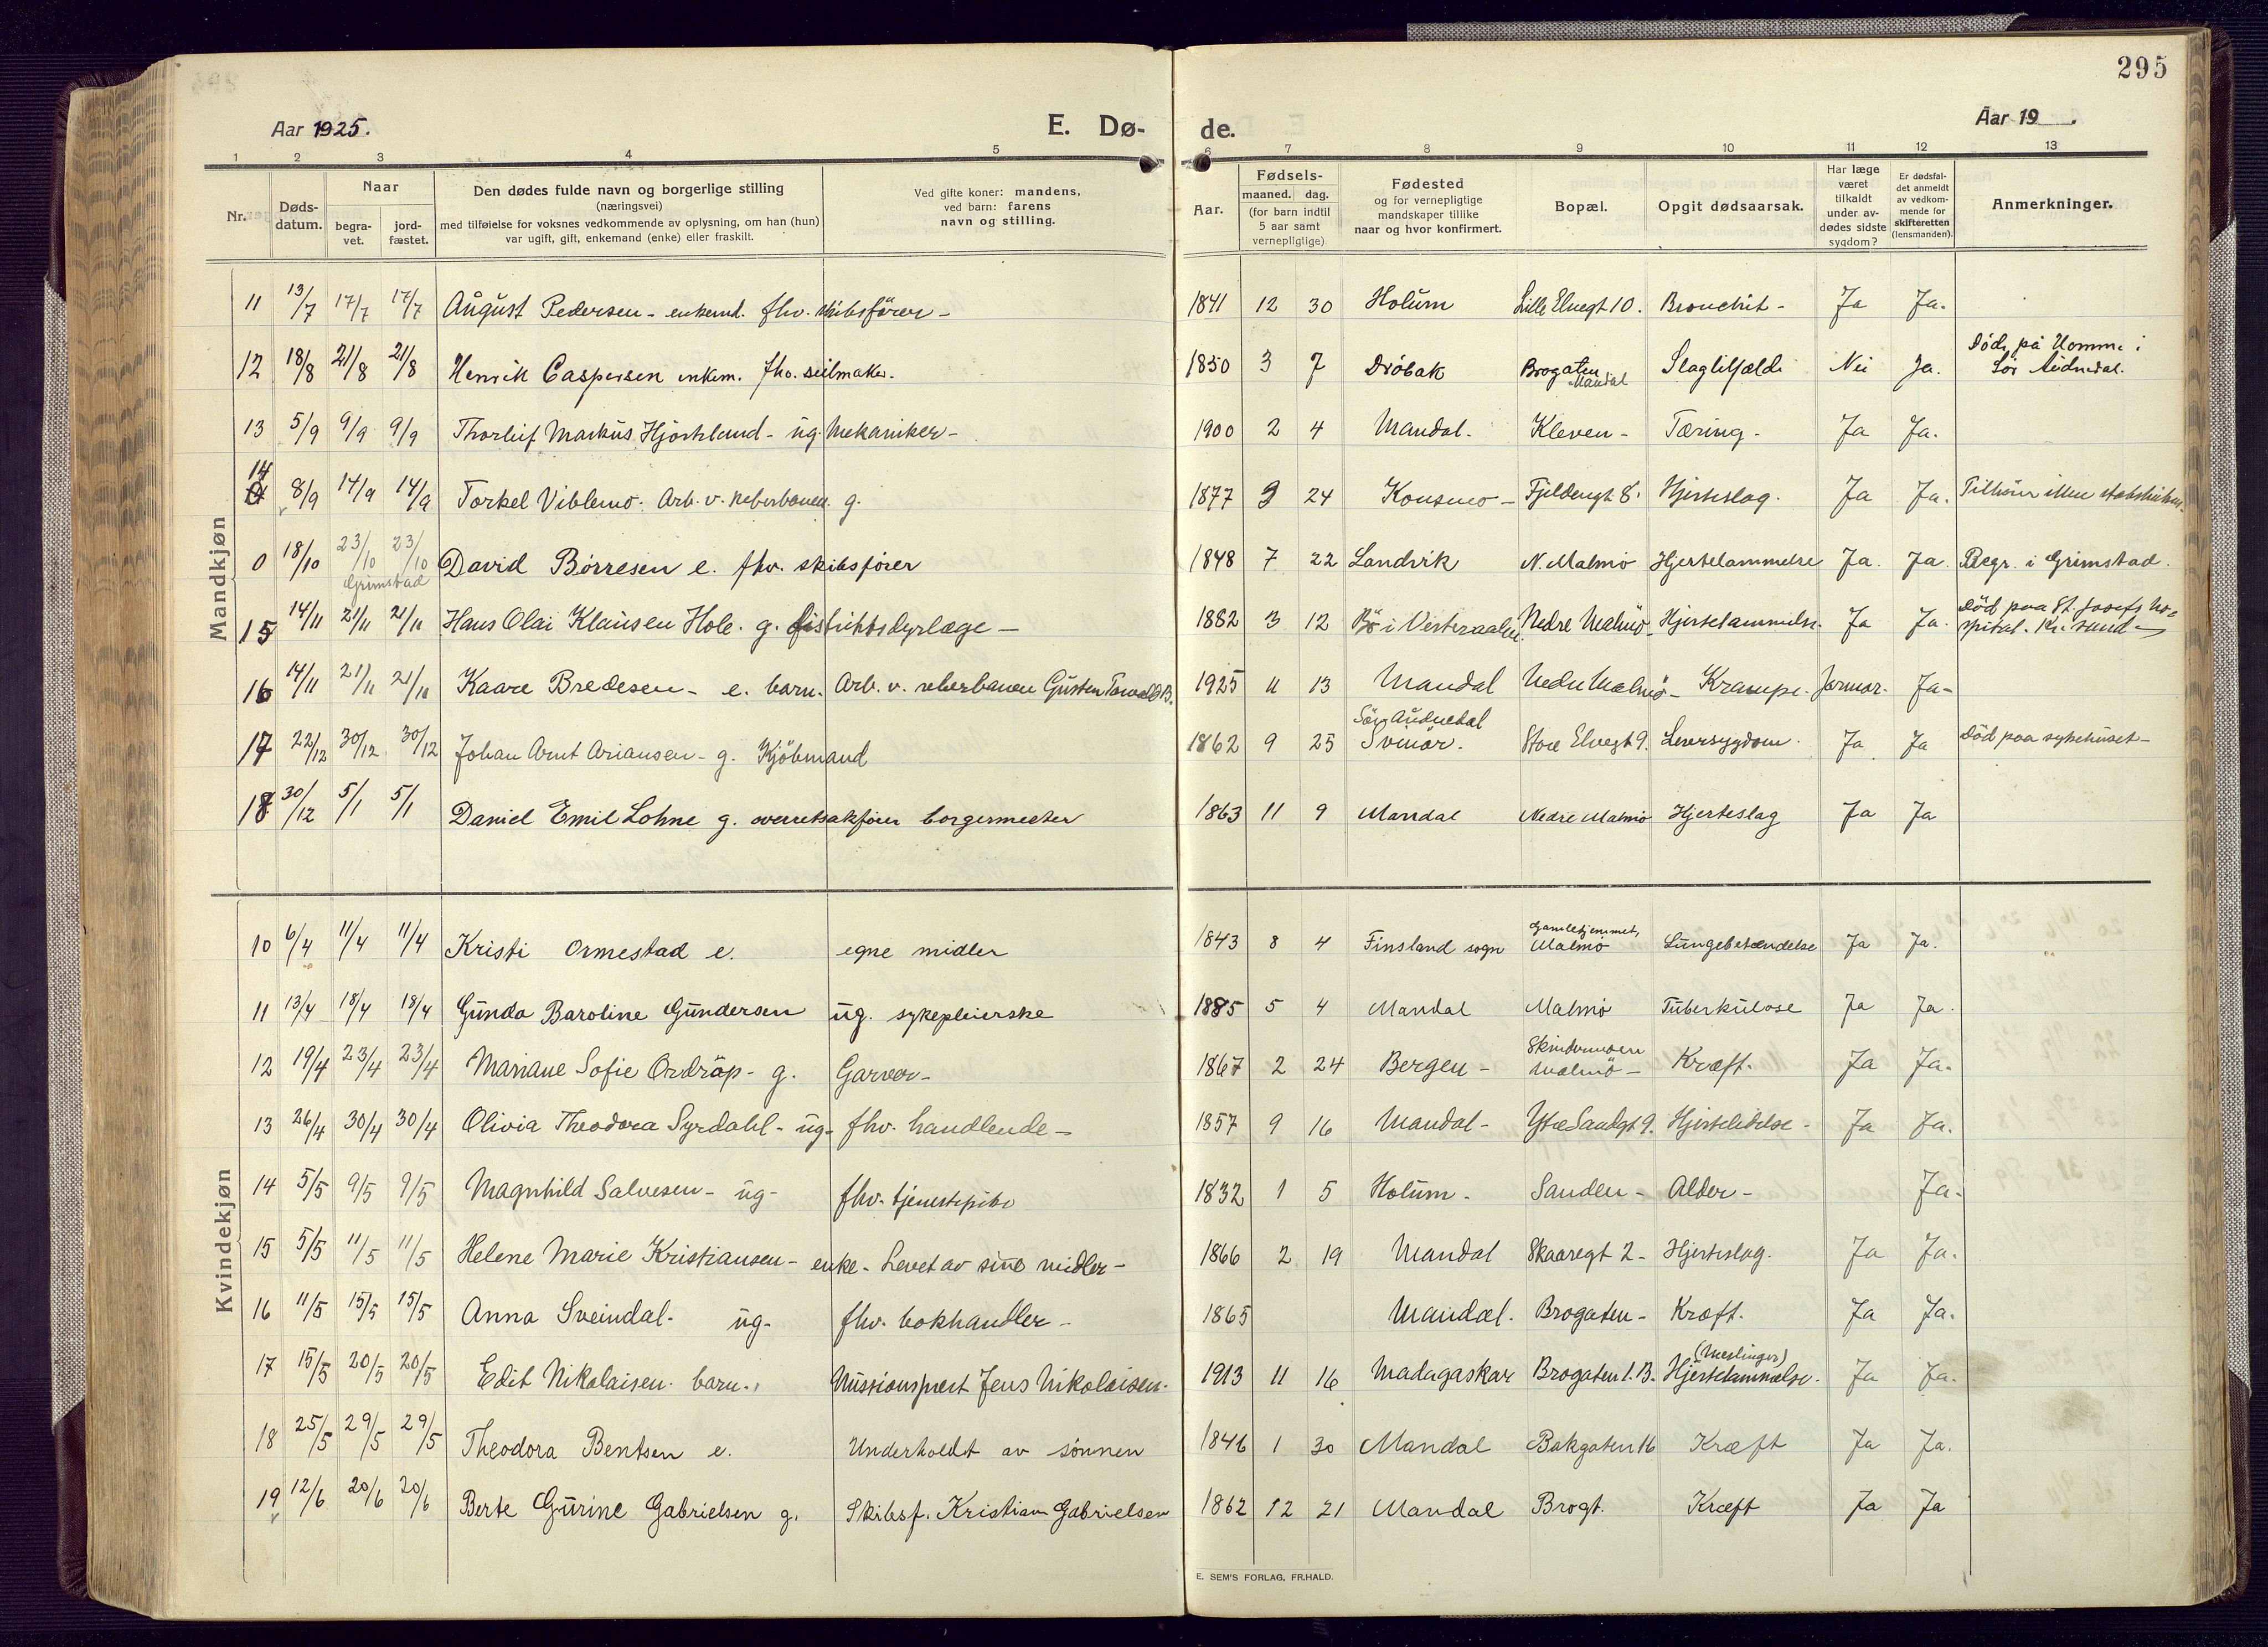 295
Aar 1925. E. Dø- de. Aar 19 .
1 2 3 4 5 6 7 8 9 10 11 12 13
Nr. Døds-datum. Naar begra-vet. jord-fæstet. Den dødes fulde navn og borgerlige stilling (næringsvei) med tilføielse for voksnes vedkommende av oplysning, om han (hun) var ugift, gift, enkemand (enke) eller fraskilt. Ved gifte koner: mandens, ved barn: farens navn og stilling. Aar. Fødsels- maaned. dag. (for barn indtil 5 aar samt vernepligtige) Fødested og for vernepligtige mandskaper tillike naar og hvor konfirmert. Bopæl. Opgit dødsaarsak. Har læge været tilkaldt under av-dødes sidste sygdom? Er dødsfal-det anmeldt av vedkom-mende for skifteretten (lensmanden). Anmerkninger.
Mandkjøn
11 13/7 17/7 17/7 August Pedersen - enkemd. fhv. skibsfører - 1841 12 30 Holum Lille Elvegt 10. Bronchit - Ja Ja.
12 18/8 21/8 21/8 Henrik Caspersen enkem. fhv. seilmaker. 1850 3 7 Drøbak Brogaten Mandal Slagtilfælde Nei Ja. Død på i Sør Audnedal.
13 5/9 9/9 9/9 Thorleif Markus Hjorteland - ug. Mekaniker - 1900 2 4 Mandal. Kleven - Tæring - Ja Ja.
14 8/9 14/9 14/9 Torkel Viblemo. Arb. v. reberbanen. g. 1877 9 24 Konsmo - Fjeldengt. 8. Hjerteslag. Ja Ja. Tilhører ikke statskirken.
0 18/10 23/10 23/10 Grimstad David Børresen e. fhv. skibsfører 1848 7 22 Landvik N. Malmø Hjertelammelse Ja. Ja. Begr. i Grimstad.
15 14/11 21/11 21/11 Hans Olai Klausen Hole. g. distriktsdyrlæge - 1882 3 12 Bø i Vesteraalen. Nedre Malmø - Hjertelammelse. Ja Ja. Død paa St. Josefs ho-spital. Kr. sand -
16 14/11 21/11 21/11 Kaare Bredesen - e. barn. Arb. v. reberbanen Gusten Torvald B. 1925 11 13 Mandal Nedre Malmø - Krampe. Jormor. Ja -
17 22/12 30/12 30/12 Johan Arnt Ariansen - g. Kjøbmand 1862 9 25 Sør Audnedal Svinør. Store Elvegt 9. Leversygdom. Ja Ja Død paa sykehuset -
18 30/12 5/1 5/1 Daniel Emil Lohne g. overretsakfører borgermester 1863 11 9 Mandal Nedre Malmø Hjerteslag Ja Ja
Kvindekjøn
10 6/4 11/4 11/4 Kristi Ormestad e. egne midler 1843 8 4 Finsland sogn Gamlehjemmet, Malmø Lungebetændelse Ja Ja.
11 13/4 18/4 18/4 Gunda Baroline Gundersen ug. sykepleierske 1885 5 4 Mandal Malmø Tuberkulose Ja Ja.
12 19/4 23/4 23/4 Mariane Sofie Ordrøp - g. Garver - 1867 2 24 Bergen - Malmø - Kræft. Ja Ja.
13 26/4 30/4 30/4 Olivia Theodora Syrdahl - ug - fhv. handlende - 1857 9 16 Mandal - Ytre Sandgt 9. Hjertelidelse - Ja Ja.
14 5/5 9/5 9/5 Magnhild Salvesen - ug - fhv. tjenestepike 1832 1 5 Holum - Sanden - Alder - Ja -
15 5/5 11/5 11/5 Helene Marie Kristiansen - enke - Levet av sine midler - 1866 2 19 Mandal Skaaregt 2 - Hjerteslag. Ja Ja.
16 11/5 15/5 15/5 Anna Sveindal - ug - fhv. bokhandler - 1865 Mandal. Brogaten - Kræft. Ja Ja.
17 15/5 20/5 20/5 Edit Nikolaisen. barn. Missionsprest Jens Nikolaisen. 1913 11 16 Madagaskar Brogaten 1. B. (Meslinger) Hjertelammelse. Ja Ja.
18 25/5 29/5 29/5 Theodora Bentsen e. Underholdt av sønnen 1846 1 30 Mandal Bakgaten 16 Kræft Ja Ja.
19 12/6 20/6 20/6 Berte Gurine Gabrielsen g. Skibsf. Kristian Gabrielsen 1862 12 21 Mandal Brogt. Kræft Ja Ja
E. SEM'S FORLAG, FR.HALD.